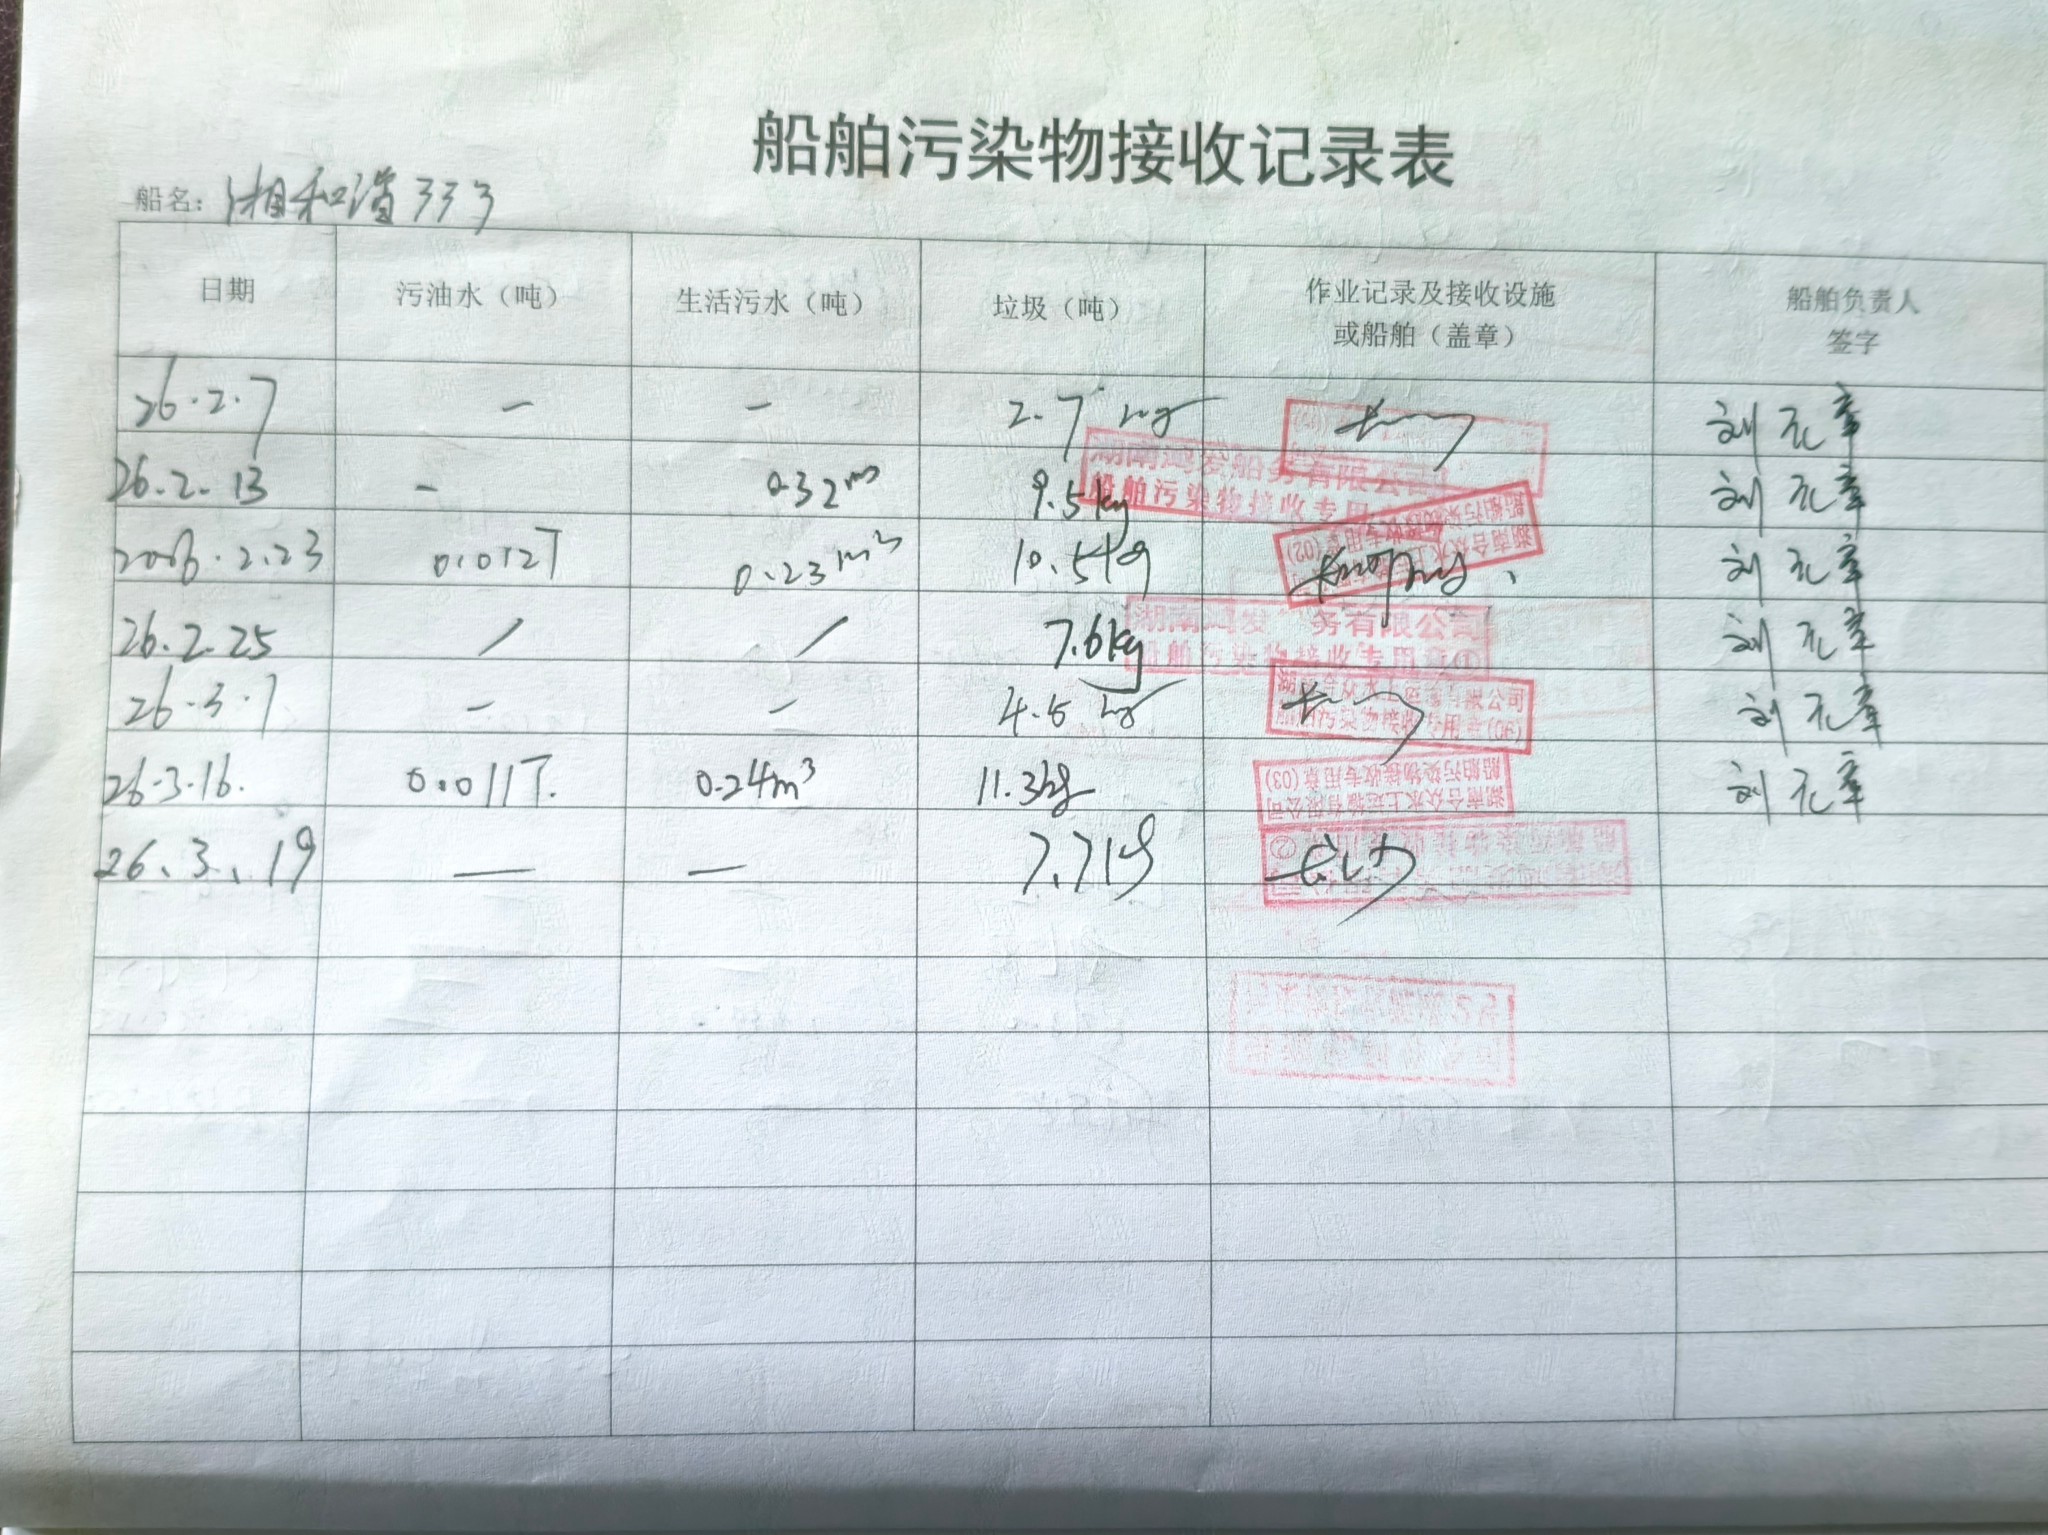 船舶污染物接收记录表
船名：湘和谐333
日期 污油水（吨） 生活污水（吨） 垃圾（吨） 作业记录及接收设施或船舶（盖章） 船舶负责人签字
26.2.7 — — 2.7 kg 刘元章
26.2.13 - 0.32 m³ 9.5kg 湖南鸿发船务有限公司 船舶污染物接收专用 刘元章
2026.2.23 0.012T 0.23m³ 10.5kg 湖南合众水上运输有限公司 船舶污染物接收专用章(02) 刘元章
26.2.25 / / 7.6kg 湖南鸿发 务有限公司 船舶污染物接收专用章① 刘元章
26.3.7. — — 4.5 kg 湖南合众水上运输有限公司 船舶污染物接收专用章(06) 刘元章
26.3.16. 0.011T. 0.24m³ 11.3kg 湖南合众水上运输有限公司 船舶污染物接收专用章(03) 刘元章
26.3.19 — — 7.7kg 船舶污染物接收专用章②